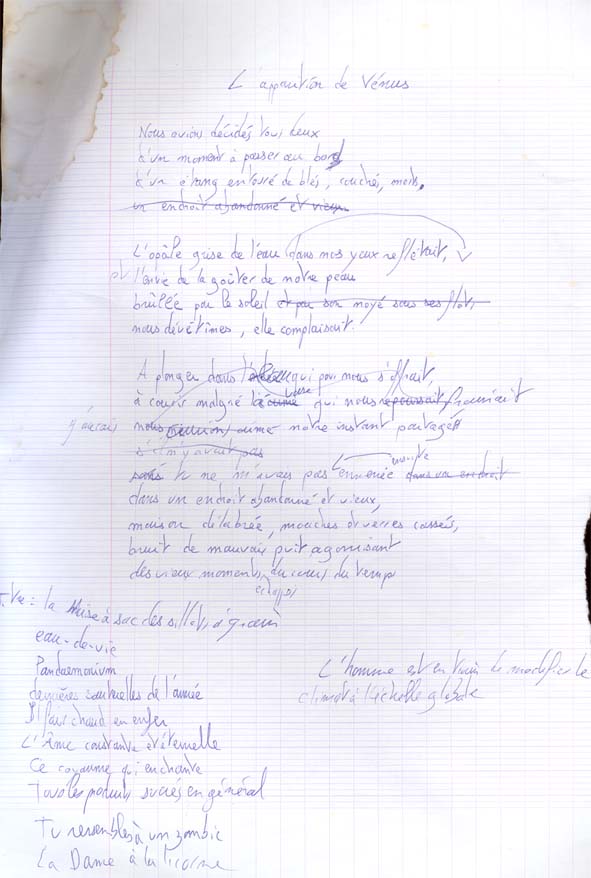 L'apparition de Vénus
Nous avions décidés tous deux
d'un moment à passer au bord
d'un étang enfossé de blés, couchés, morts,
un endroit abandonné et vieux
L'opâle grise de l'eau dans nos yeux reflétait,
et l'envie de la goûter de notre peau
brûlée par le soleil et par son noyé sous ses flots,
nous dévêtîmes, elle complaisait.
A plonger dans l'eau qui pour nous s'offrait,
à courir malgré la qui nous repoussait
j'aurais nous aimé notre instant partagé
s'il n'y avait pas
tu ne m'avais pas emmenée ensuite dans un endroit
dans un endroit abandonné et vieux,
maison délabrée, mouches et verres cassés,
bruit de mauvais agonisant
des vieux moments, du cours du temps
la Mise à sac des
eau-de-vie
Pandaemonium
dernières de l'année
Il fait chaud en enfer
L'homme est en train de modifier le
climat à l'échelle globale
L'Âme constante et éternelle
Ce royaume qui enchante
Tous les produits sucrés en général
Tu ressembles à un zombie
La Dame à la licorne